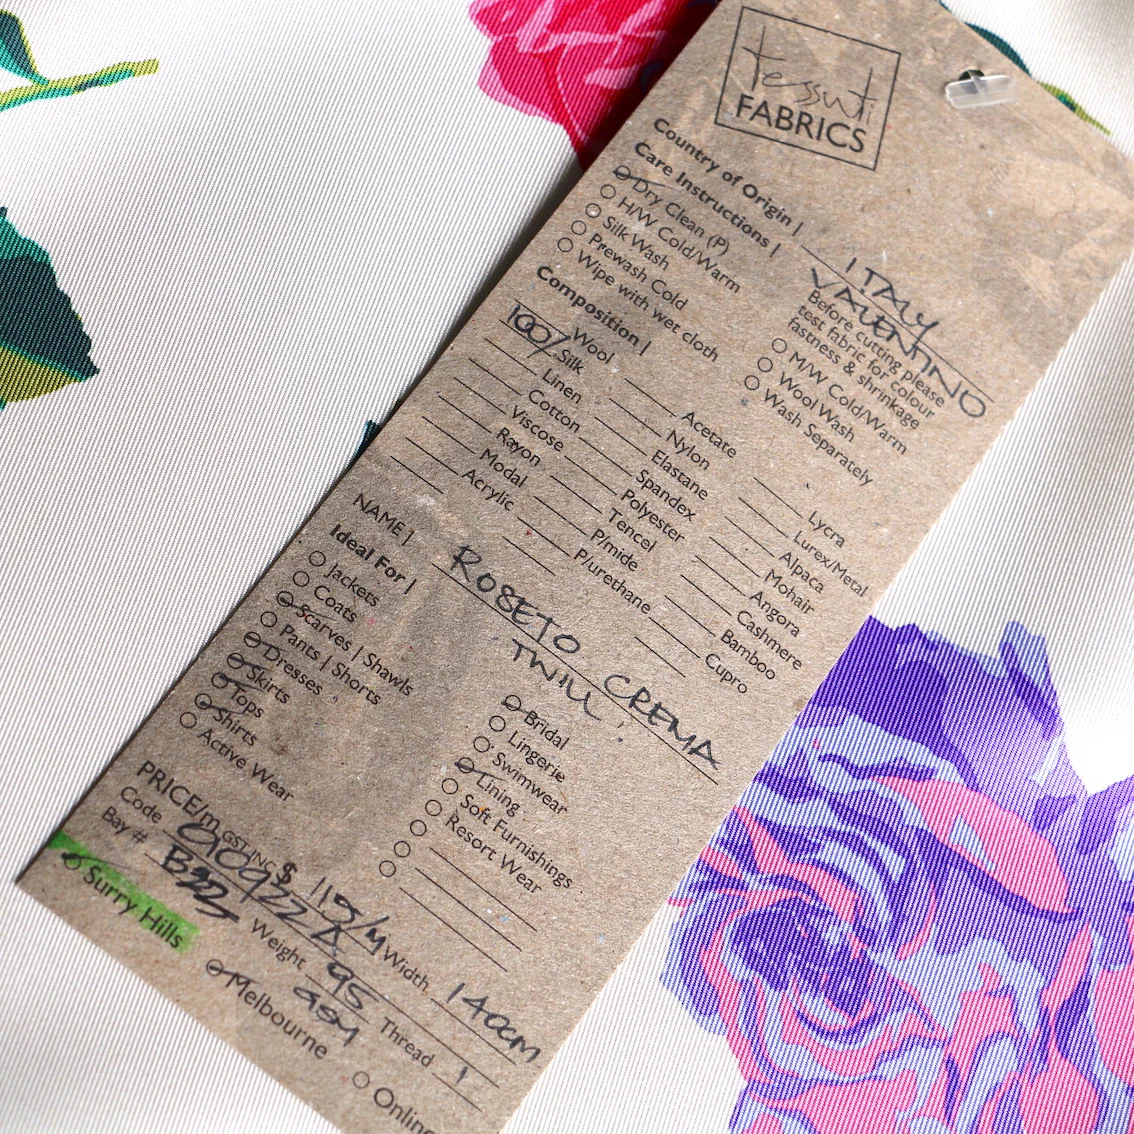 tessuti
FABRICS
Country of Origin | ITALY
VALENTINO
Care Instructions |
Dry Clean (P)
H/W Cold/Warm
Silk Wash
Prewash Cold
Wipe with wet cloth
Before cutting please
test fabric for colour
fastness & shrinkage
M/W Cold/Warm
Wool Wash
Wash Separately
Composition |
Wool
100% Silk
Linen
Cotton
Viscose
Rayon
Modal
Acrylic
Acetate
Nylon
Elastane
Spandex
Polyester
Tencel
P/mide
P/urethane
Lycra
Lurex/Metal
Alpaca
Mohair
Angora
Cashmere
Bamboo
Cupro
NAME | ROSETO CREMA
TWILL
Ideal For |
Jackets
Coats
Scarves | Shawls
Pants | Shorts
Dresses
Skirts
Tops
Shirts
Active Wear
Bridal
Lingerie
Swimwear
Lining
Soft Furnishings
Resort Wear
PRICE/m GST INC $ 119/M Width 140cm
Code
Bay # B22 Weight 95 Thread 1
gsm
Surry Hills
Melbourne
Online